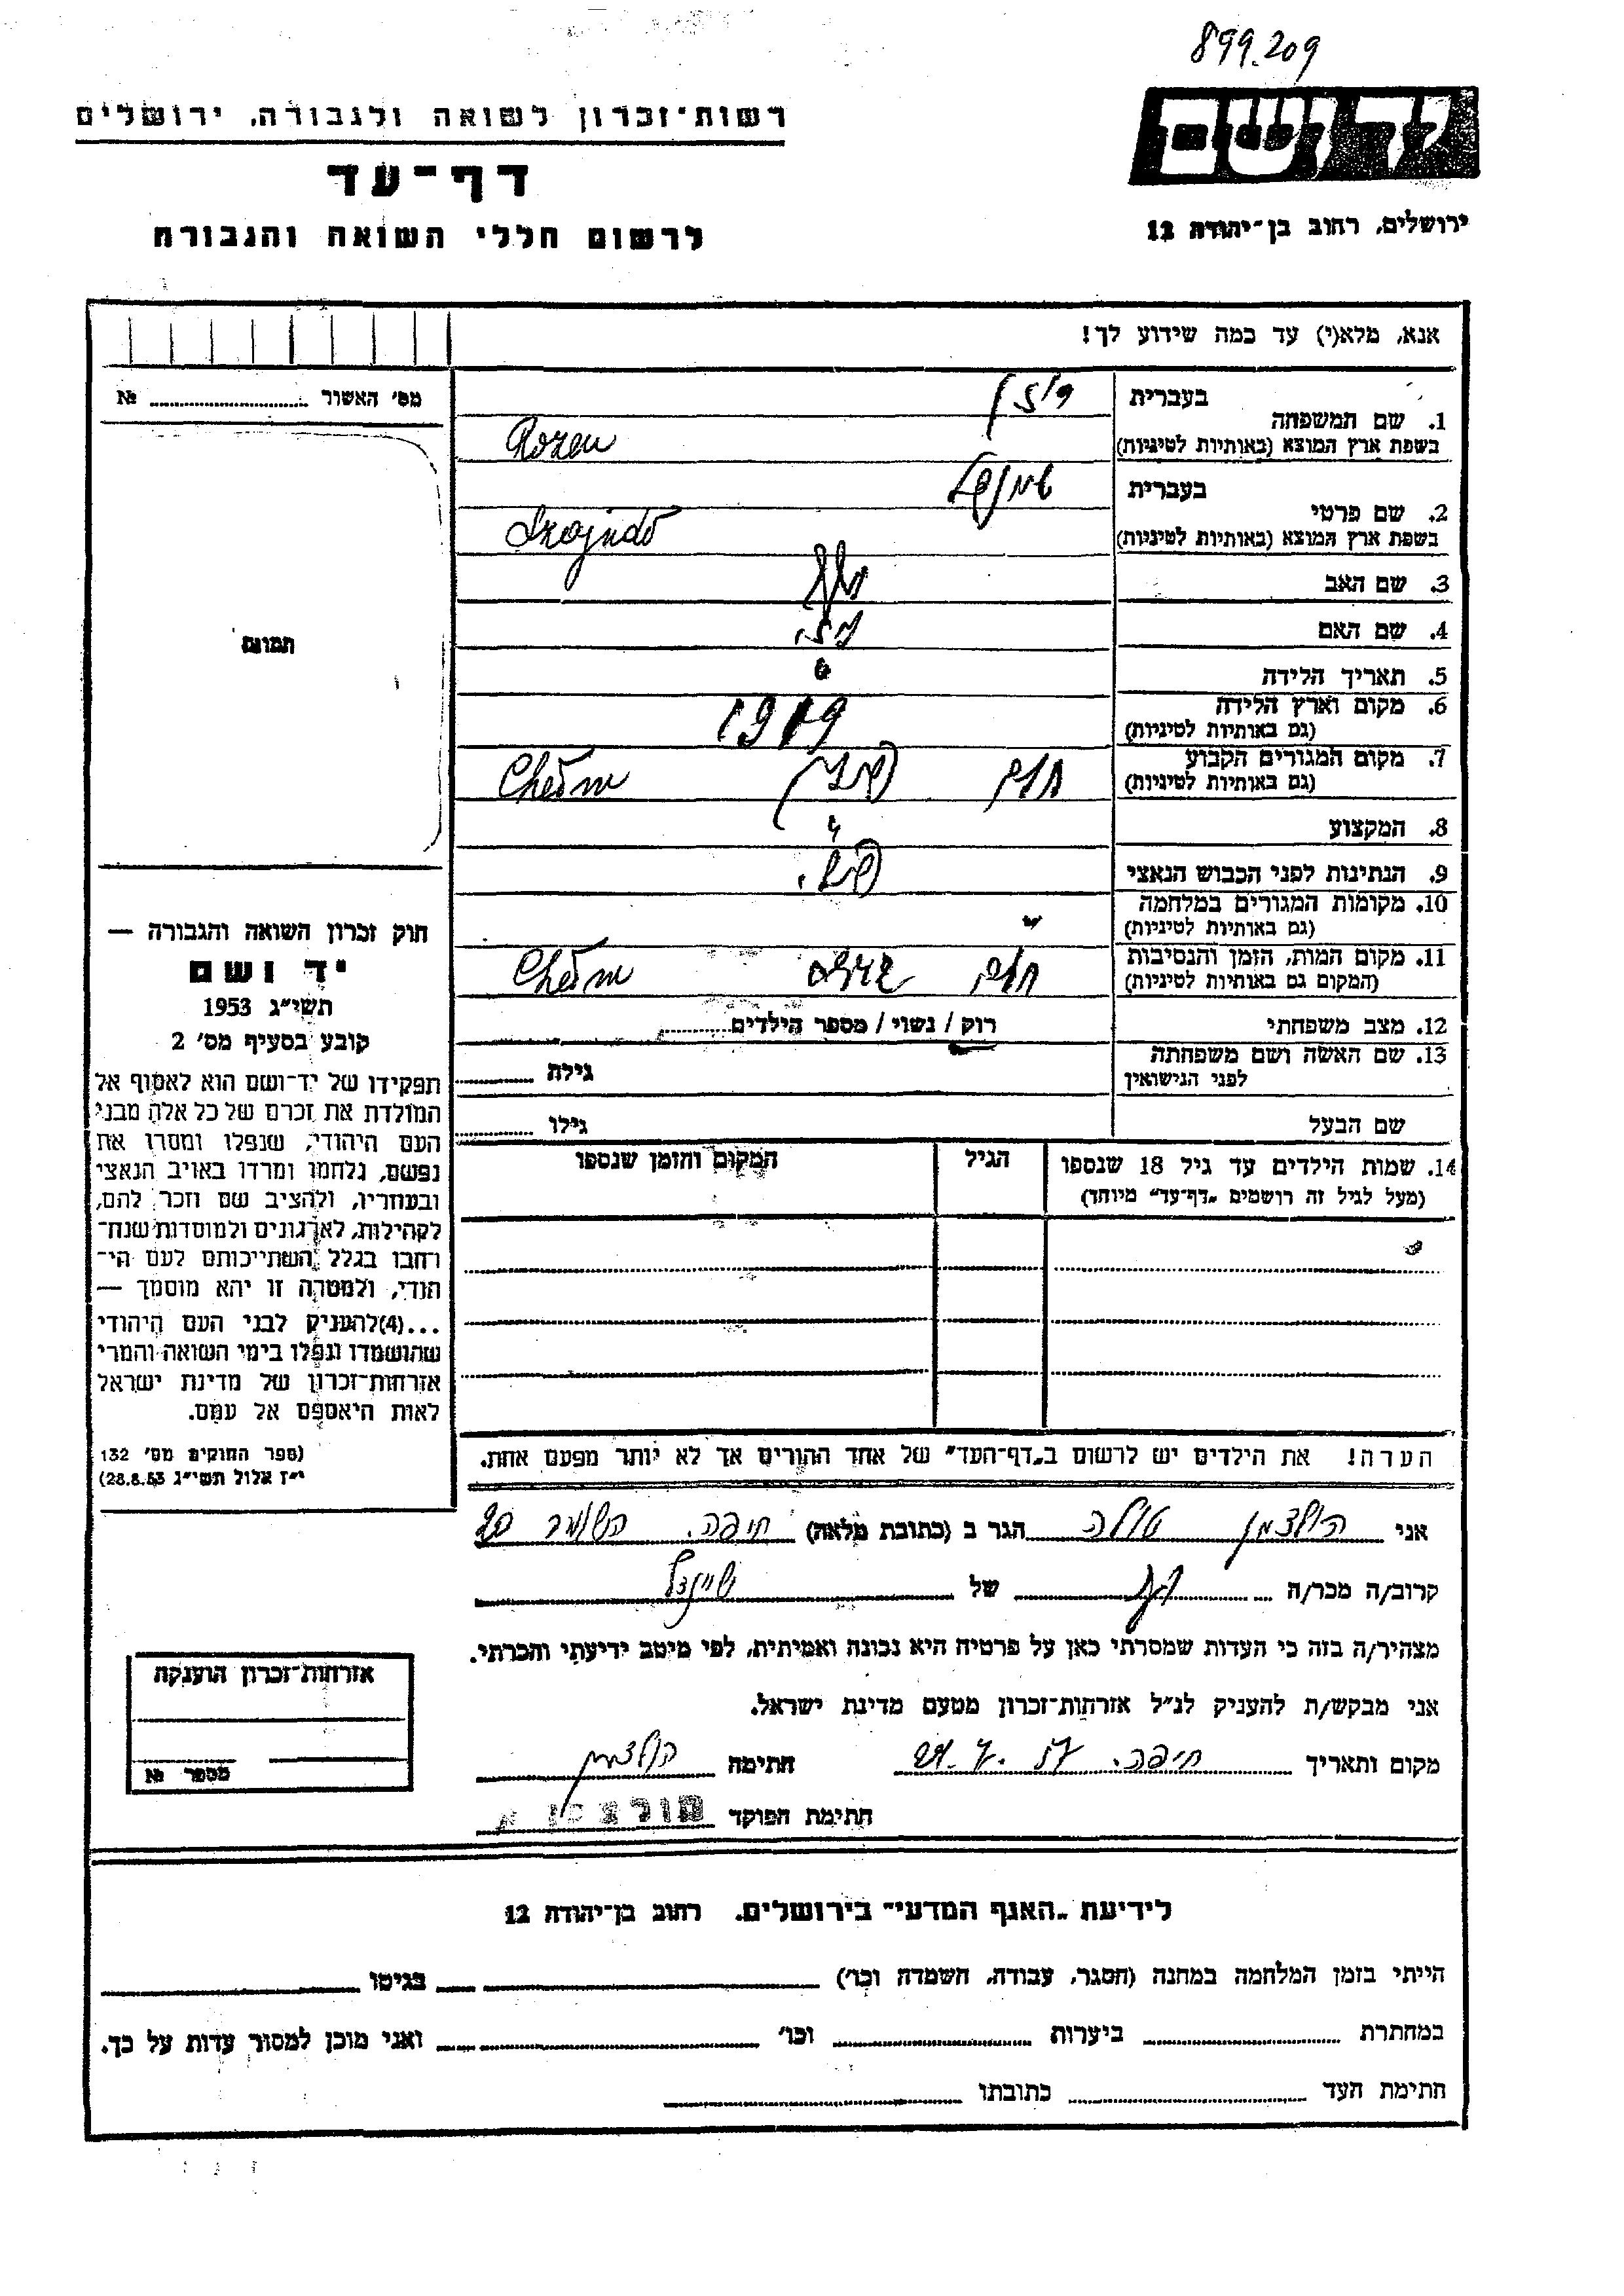 899.209
רשות־זכרון לשואה ולגבורה, ירושלים
יד ושם
דף־עד
ירושלים, רחוב בן־יהודה 12
לרשום חללי השואה והגבורה
אנא, מלא(י) עד כמה שידוע לך!
מס' האשור № 
1. שם המשפחה
בעברית
רוזן
בשפת ארץ המוצא (באותיות לטיניות)
Rozen
2. שם פרטי
בעברית
בשפת ארץ המוצא (באותיות לטיניות)
3. שם האב
4. שם האם
5. תאריך הלידה
6. מקום וארץ הלידה
(גם באותיות לטיניות)
1919
7. מקום המגורים הקבוע
(גם באותיות לטיניות)
חלם Chełm
8. המקצוע
9. הנתינות לפני הכבוש הנאצי
10. מקומות המגורים במלחמה
(גם באותיות לטיניות)
11. מקום המות, הזמן והנסיבות
(המקום גם באותיות לטיניות)
חלם Chełm
12. מצב משפחתי
רוק / נשוי / מספר הילדים
13. שם האשה ושם משפחתה
לפני הנישואין
גילה
שם הבעל
גילו
14. שמות הילדים עד גיל 18 שנספו
(מעל לגיל זה רושמים „דף־עד" מיוחד)
הגיל
המקום והזמן שנספו
הערה! את הילדים יש לרשום ב„דף־העד" של אחד ההורים אך לא יותר מפעם אחת.
תמונה
חוק זכרון השואה והגבורה —
יד ושם
תשי"ג 1953
קובע בסעיף מס' 2
תפקידו של יד־ושם הוא לאסוף אל
המולדת את זכרם של כל אלה מבני
העם היהודי, שנפלו ומסרו את
נפשם, נלחמו ומרדו באויב הנאצי
ובעוזריו, ולהציב שם וזכר להם,
לקהילות, לארגונים ולמוסדות שנח־
רחבו בגלל השתייכותם לעם הי־
הודי, ולמטרה זו יהא מוסמך —
...(4)להעניק לבני העם היהודי
שהושמדו ונפלו בימי השואה והמרי
אזרחות־זכרון של מדינת ישראל
לאות היאספם אל עמם.
(ספר החוקים מס' 132
י"ז אלול תשי"ג 28.8.53)
אני הולצמן טולה הגר ב (כתובת מלאה) חיפה. השומר 20
קרוב/ה מכר/ה של שיינדל
מצהיר/ה בזה כי העדות שמסרתי כאן על פרטיה היא נכונה ואמיתית, לפי מיטב ידיעתי והכרתי.
אני מבקש/ת להעניק לנ"ל אזרחות־זכרון מטעם מדינת ישראל.
מקום ותאריך חיפה. חתימה הולצמן
חתימת הפוקד
אזרחות־זכרון הוענקה
מספר №
לידיעת „האגף המדעי" בירושלים, רחוב בן־יהודה 12
הייתי בזמן המלחמה במחנה (הסגר, עבודה, השמדה וכו') בגיטו
במחתרת ביערות וכו' ואני מוכן למסור עדות על כך.
חתימת העד כתובתו